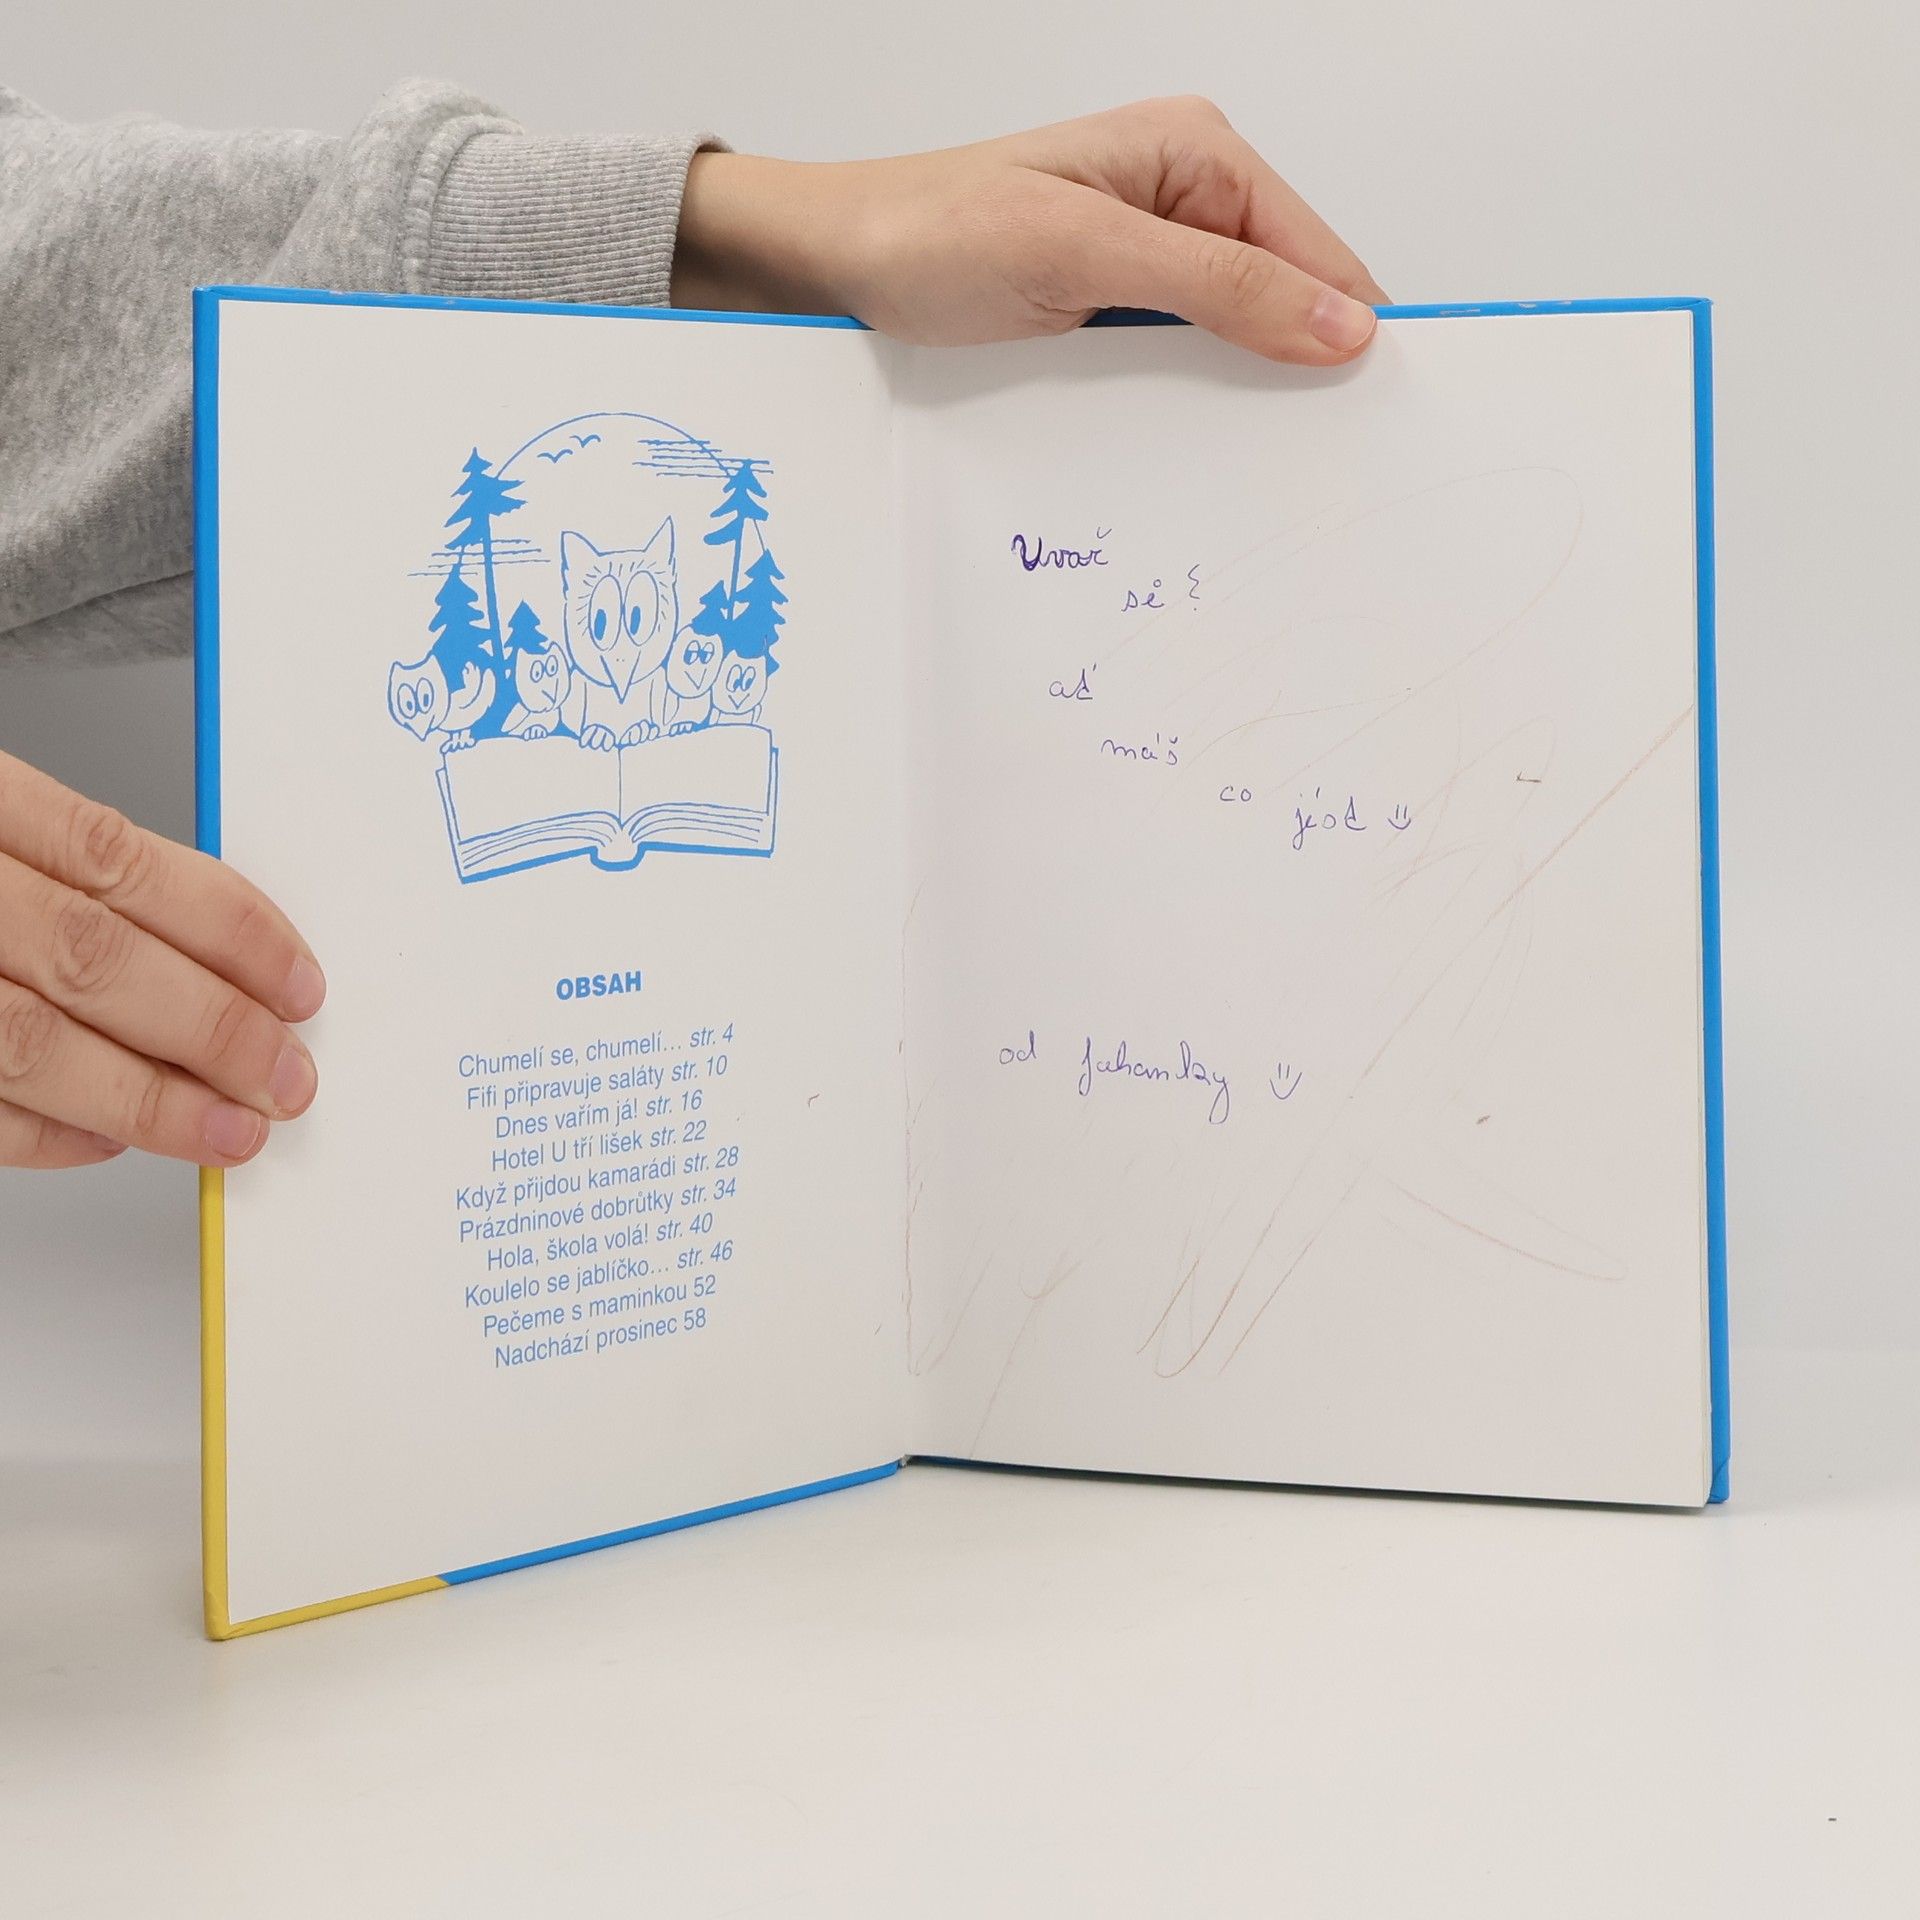 OBSAH
Chumelí se, chumelí... str. 4
Fifi připravuje saláty str. 10
Dnes vařím já! str. 16
Hotel U tří lišek str. 22
Když přijdou kamarádi str. 28
Prázdninové dobrůtky str. 34
Hola, škola volá! str. 40
Koulelo se jablíčko... str. 46
Pečeme s maminkou 52
Nadchází prosinec 58
Uvař
si
ať
máš
co jést
od